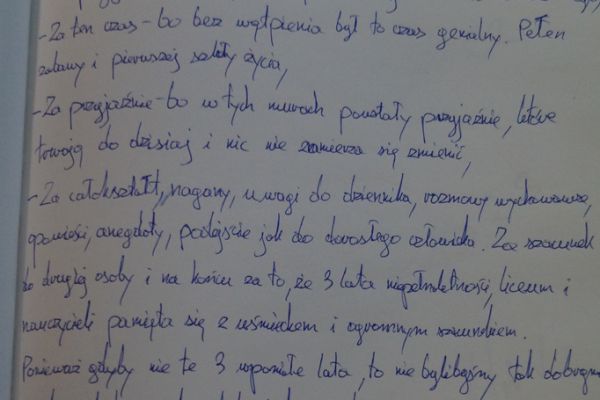 - Za ten czas - bo bez wątpienia był to czas genialny. Pełen
zabawy i pierwszej szkoły życia,
- Za przyjaźnie - bo w tych murach powstały przyjaźnie, które
trwają do dzisiaj i nic nie zamierza się zmienić,
- Za całokształt, nagany, uwagi do dziennika, rozmowy wychowawcze,
opowieści, anegdoty, podejście jak do dorosłego człowieka. Za szacunek
do drugiej osoby i na końcu za to, że 3 lata niepełnoletności, liceum i
nauczycieli pamięta się z uśmiechem i ogromnym szacunkiem.
Ponieważ gdyby nie te 3 wspaniałe lata, to nie bylibyśmy tak dobrymi